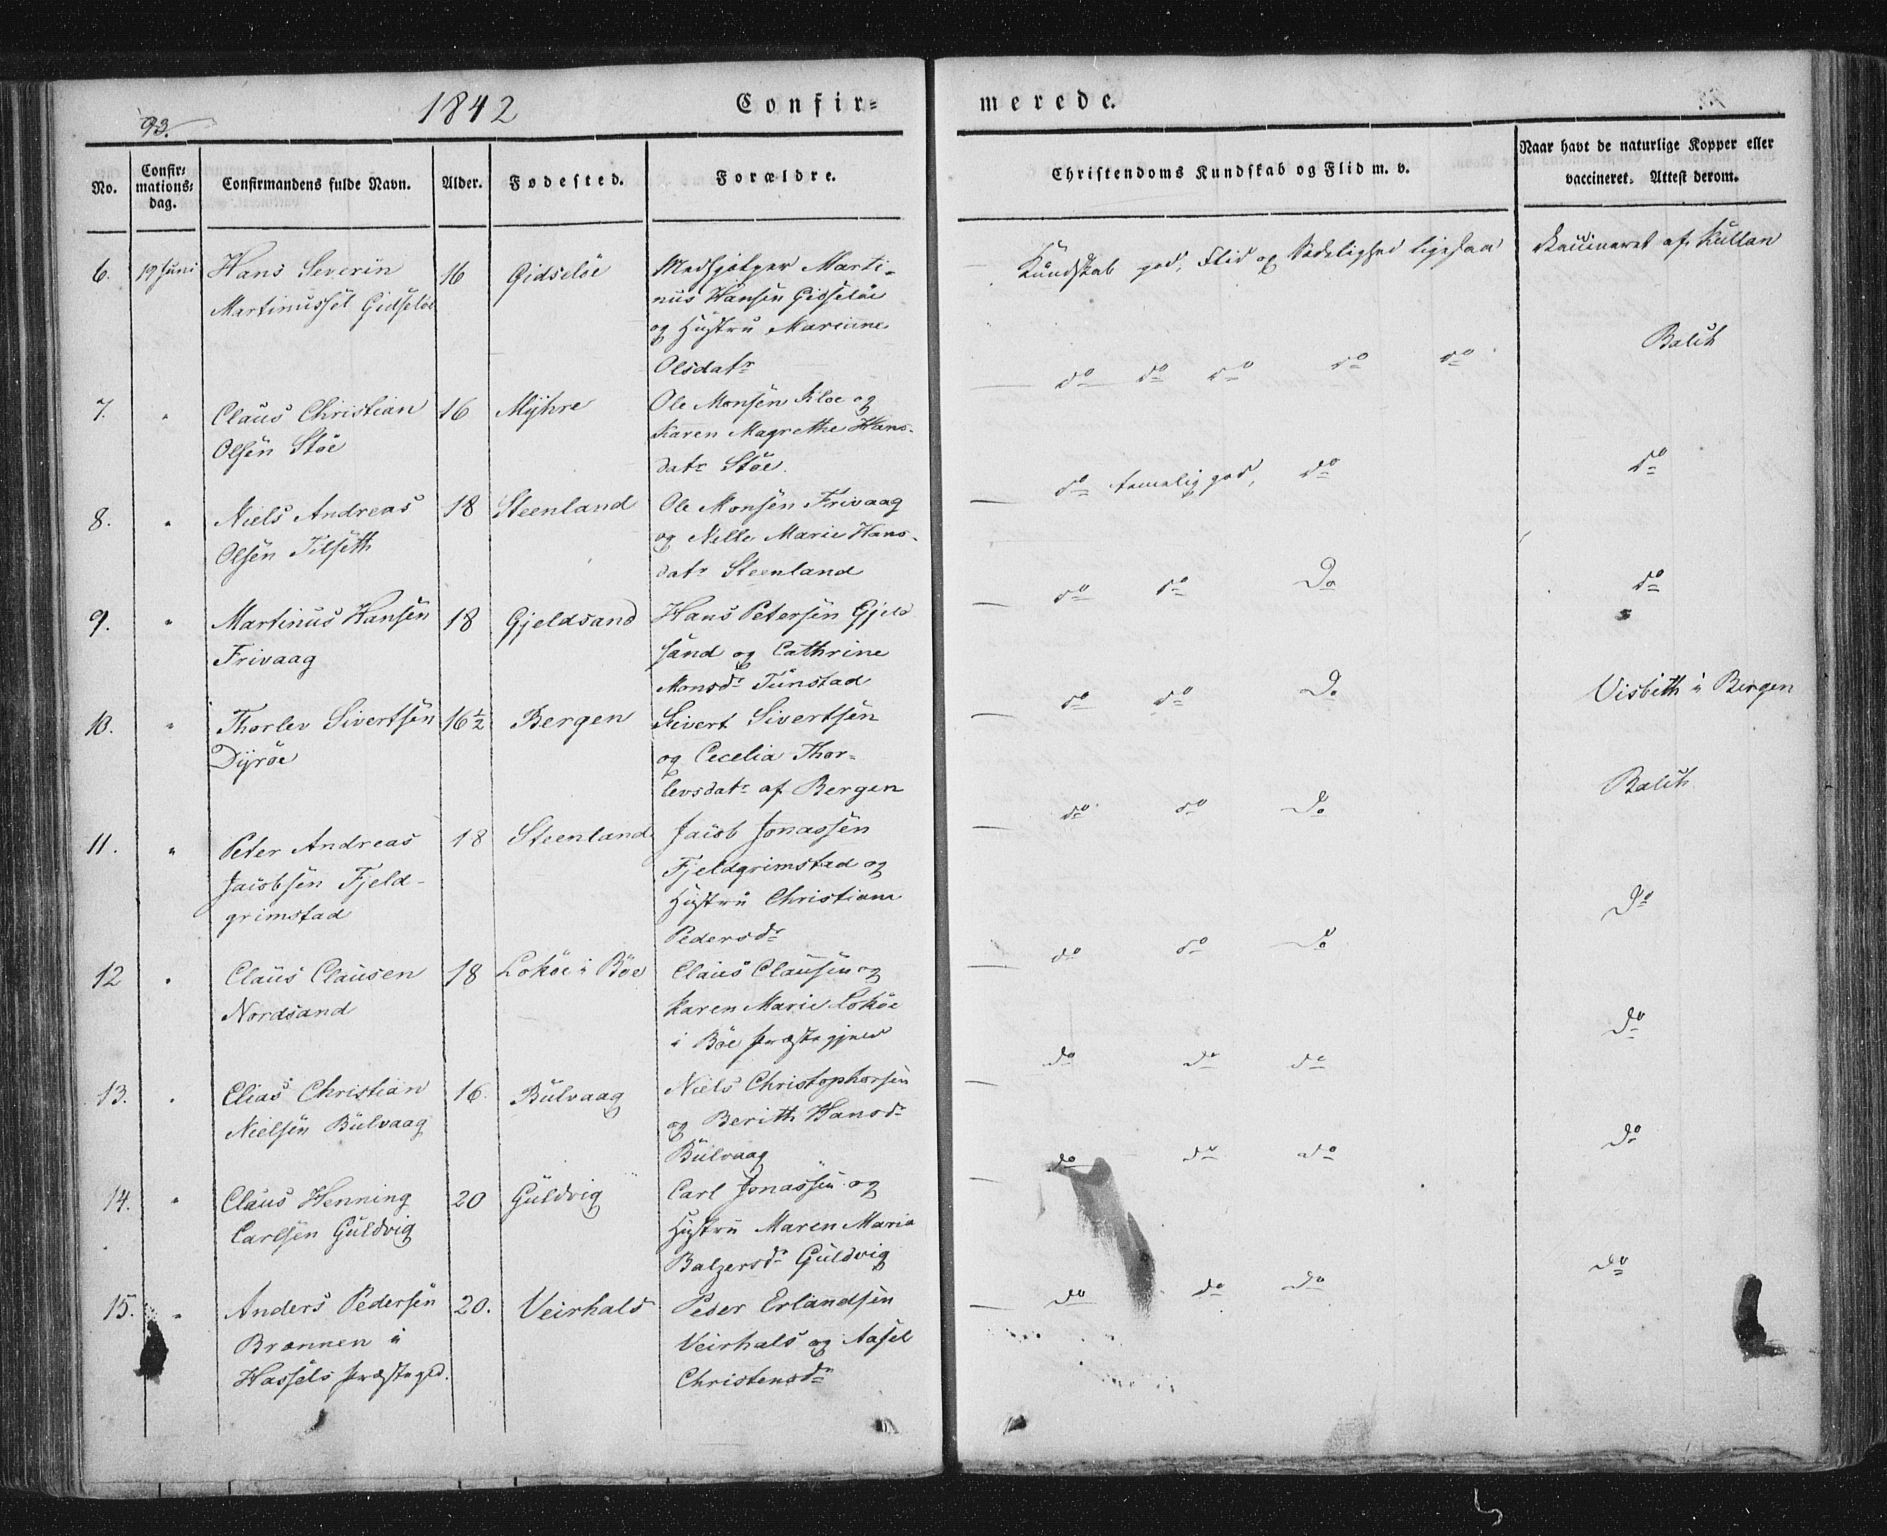 93.
1842
Confir=
merede.
No.
Confir=
mations=
dag.
Confirmandens fulde Navn.
Alder.
Fødested.
Forældre.
Christendoms Kundskab og Flid m. v.
Naar havt de naturlige Kopper eller
vaccineret. Attest derom.
6. 19 Juni Hans Severin 16 Gidseløe Medhjelper Marti-
Martinussøl Gidseløe nus Hansen Gidseløe
og Hustru Marianne
Olsdatr
Kundskab god, Flid og Sædelighed ligesaa
Vaccineret af Kullan
7. " Claus Christian 16 Myhre Ole Monsen Kloe og
Olsen Støe Karen Magrethe Hans-
datr Støe.
do do do do do
Balch
8. " Niels Andreas 18 Steenland Ole Monsen Frivaag
Olsen Tilseth og Nille Marie Hans-
datr Steenland
do temelig god, do
do
9. " Martinus Hansen 18 Gjeldsand Hans Petersen Gjeld
Frivaag sand og Cathrine
Monsdr Tunstad
do do Do
do
10. " Thorlev Sivertsen 16½ Bergen Sivert Sivertsen
Dyrøe og Cecelia Thor-
levsdatr af Bergen
do do Do
Visbeth i Bergen
11. " Peter Andreas 18 Steenland Jacob Jonassen
Jacobsen Fjeld- Fjeldgrimstad og
grimstad Hustru Christiane
Pedersdr
do do Do
Balch
12 " Claus Clausen 18 Lokøe i Bøe Claus Clausen og
Nordsand Karen Marie Lokøe
i Bøe Præstegjeld
do do Do
Do
13. " Elias Christian 16. Bulvaag Niels Christophersen
Nielsen Bulvaag og Berith Hansdr
Bulvaag
do do do
Do
14. " Claus Henning 20 Guldvig Carl Jonassen og
Carlsen Guldvig Hustru Maren Maria
Balzersdr Guldvig
do do do
Do
15. " Anders Pedersen 20. Veirhals Peder Erlandsen
Brønnen i Veirhals og Aasel
Hassels Præstegld. Christensdr
do do do
Do